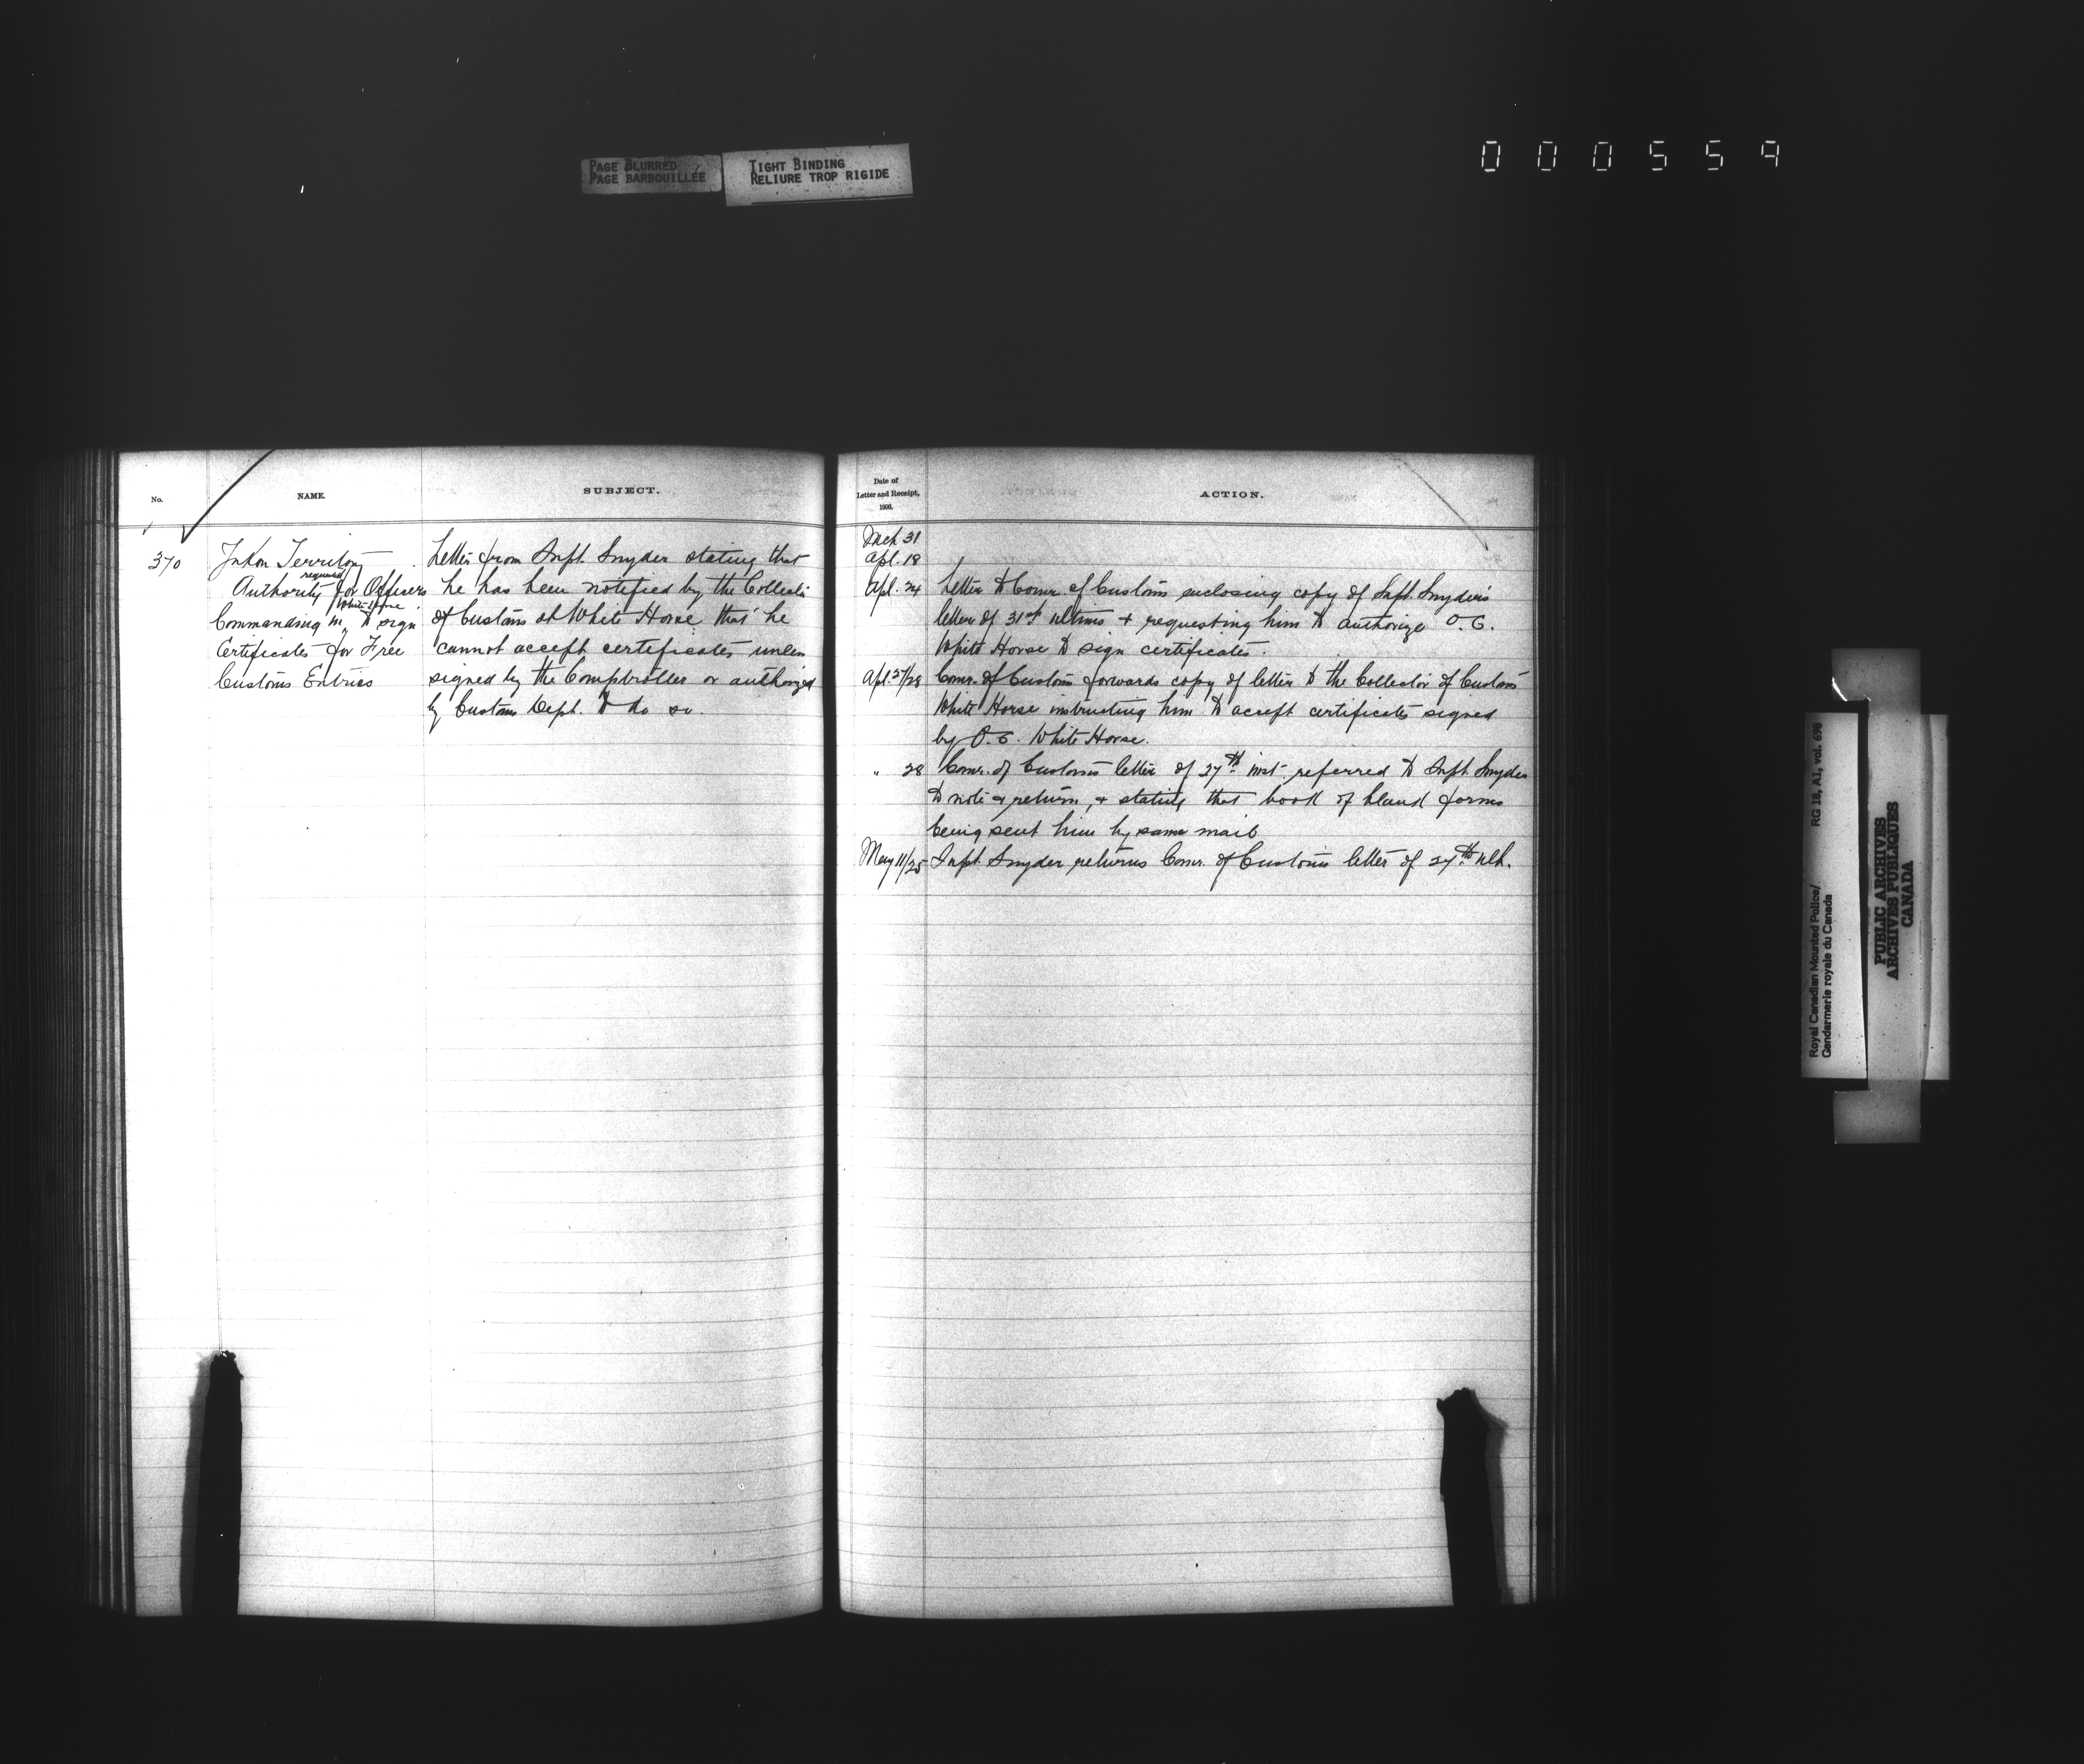 PAGE BLURRED
PAGE BARBOUILLÉE
TIGHT BINDING
RELIURE TROP RIGIDE
000559
No.
NAME.
SUBJECT.
370
Yukon Territory
Authority required for Officers
Commanding in White Horse to sign
Certificates for Free
Customs Entries
Letter from Supt. Snyder stating that
he has been notified by the Collector
of Customs at White Horse that he
cannot accept certificates unless
signed by the Comptroller or authorized
by Customs Dept. to do so.
Date of
Letter and Receipt,
1906.
ACTION.
Mch 31
Apl. 18
Apl. 24 Letter to Comr. of Customs enclosing copy of Supt. Snyder's
letter of 31st ultimo + requesting him to authorize O.C.
White Horse to sign certificates.
Apl. 27/28 Comr. of Customs forwards copy of letter to the Collector of Customs
White Horse instructing him to accept certificates signed
by O.C. White Horse.
" 28 Comr. of Customs letter of 27th inst. referred to Supt. Snyder
to note & return, + stating that book of blank forms
being sent him by same mail
May 11/25 Supt. Snyder returns Comr. of Customs letter of 27th ult.
Royal Canadian Mounted Police/
Gendarmerie royale du Canada
RG 18, A1, vol. 698
PUBLIC ARCHIVES
ARCHIVES PUBLIQUES
CANADA